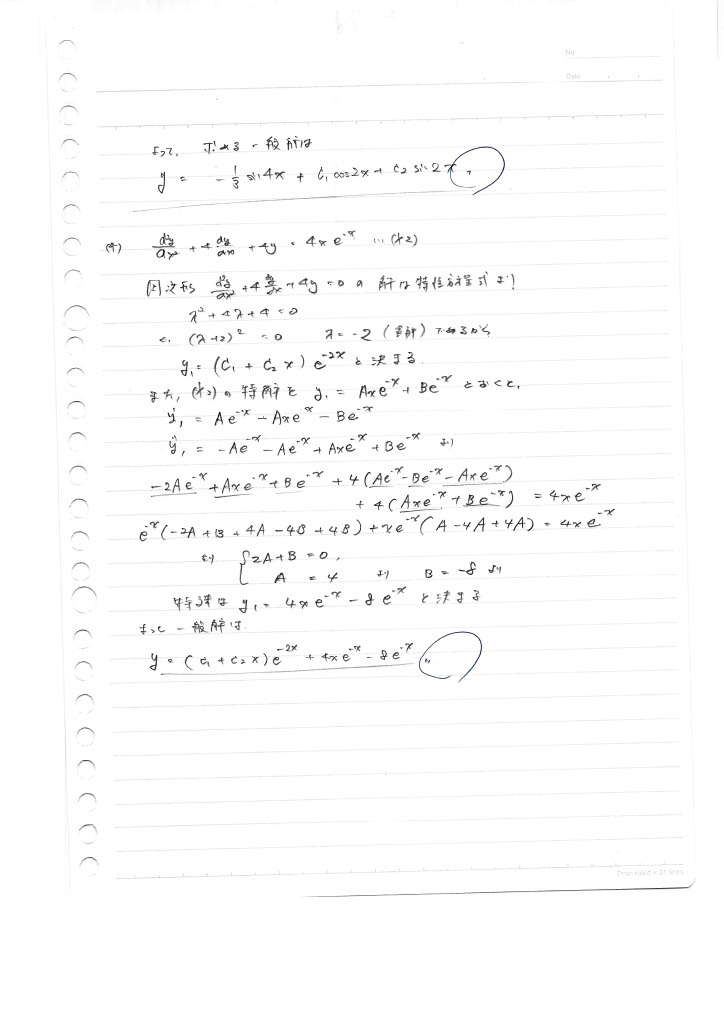 No.
Date
よって, 求める一般解は
y = -1/3 sin4x + C₁ cos2x + C₂ sin2x 〃
(4) d²y/dx² + 4 dy/dx + 4y = 4xe^{-x} … (*2)
同次形 d²y/dx² + 4 dy/dx + 4y = 0 の 解は 特性方程式 より
λ² + 4λ + 4 = 0
∴ (λ+2)² = 0 λ = -2 (重解) であるから
y₁ = (C₁ + C₂x) e^{-2x} と決まる.
また, (*2) の 特解を y₁ = Axe^{-x} + Be^{-x} とおくと,
y₁' = Ae^{-x} - Axe^{-x} - Be^{-x}
y₁'' = -Ae^{-x} - Ae^{-x} + Axe^{-x} + Be^{-x} より
-2Ae^{-x} + Axe^{-x} + Be^{-x} + 4(Ae^{-x} - Be^{-x} - Axe^{-x})
+ 4(Axe^{-x} + Be^{-x}) = 4xe^{-x}
e^{-x}(-2A + B + 4A - 4B + 4B) + xe^{-x}(A - 4A + 4A) = 4xe^{-x}
より { 2A + B = 0,
A = 4 より B = -8 より
特解は y₁ = 4xe^{-x} - 8e^{-x} と決まる
よって一般解は
y = (C₁ + C₂x)e^{-2x} + 4xe^{-x} - 8e^{-x} 〃
7mm ruled × 31 lines